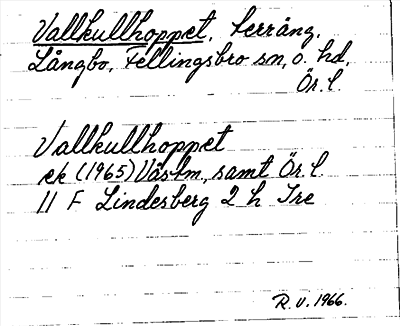 Vallkullhoppet, terräng,
Långbo, Fellingsbro sn, o. hd,
Ör. l.
Vallkullhoppet
ek (1965) Västm., samt Ör. l.
11 F Lindesberg 2 h Tre
R.V. 1966.